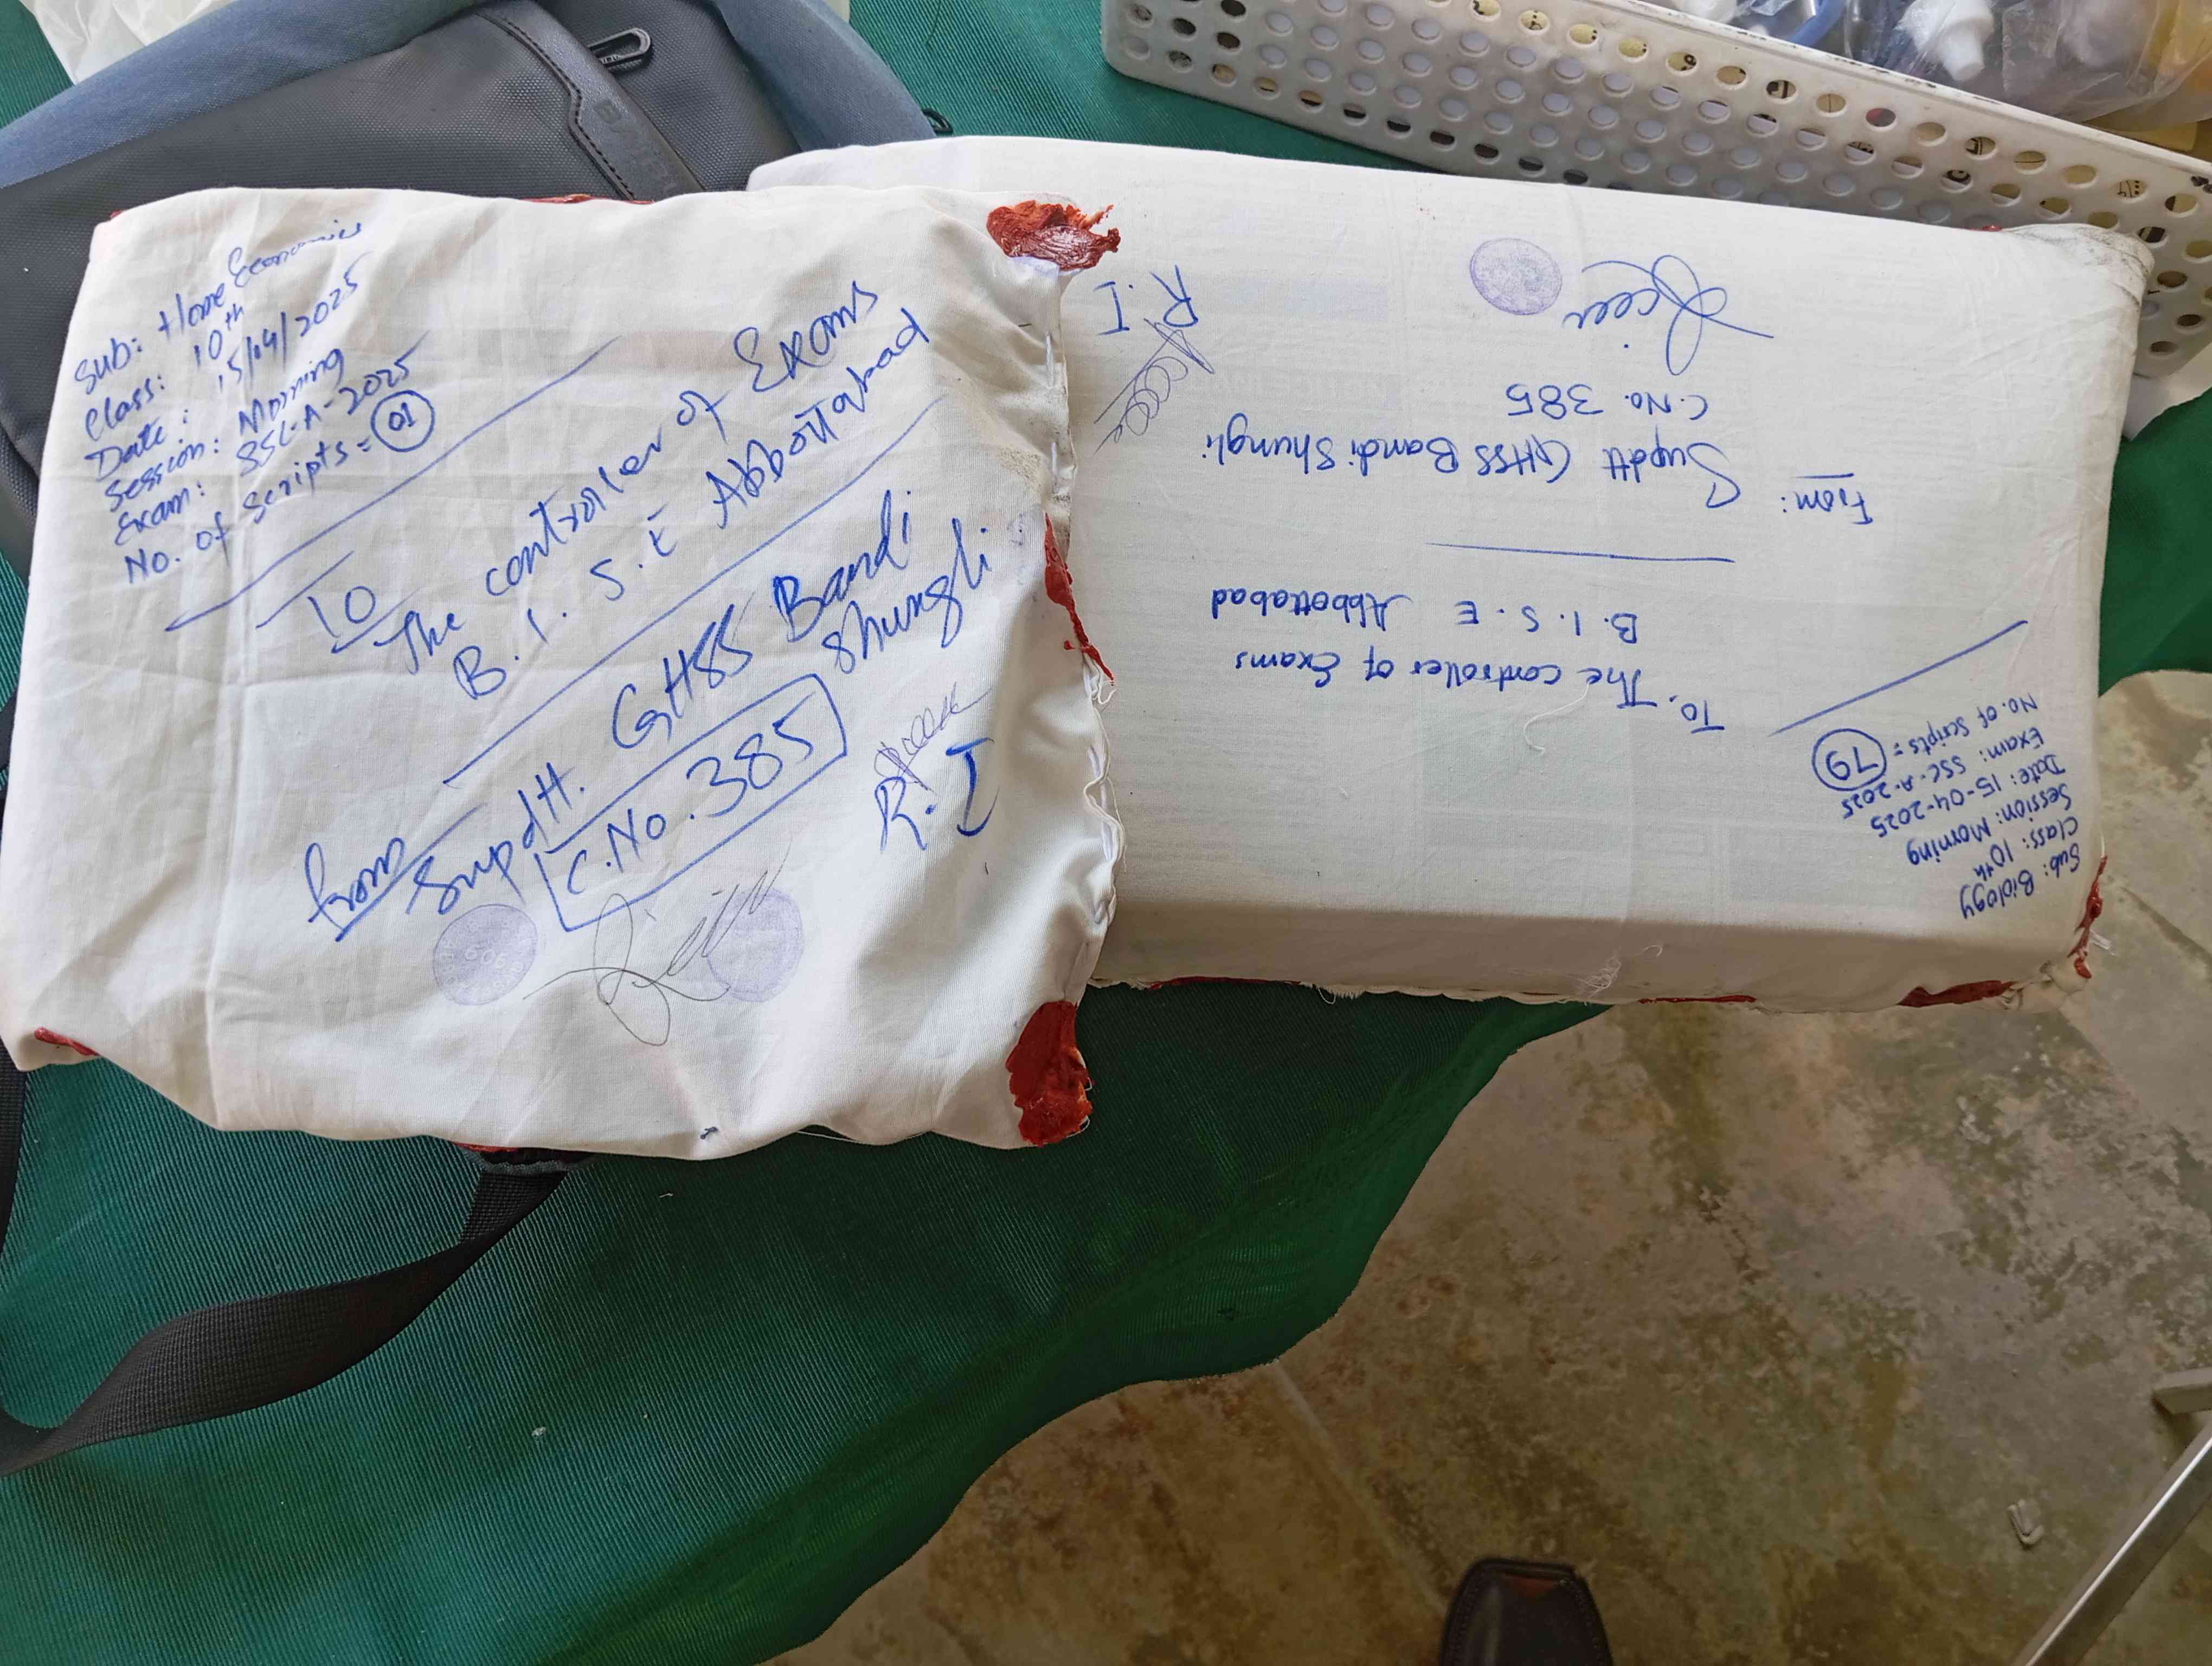 Sub: Home Economics
Class: 10th
Date: 15/04/2025
Session: Morning
Exam: SSC-A-2025
No. of Scripts = 01
To
The controler of Exams
B.I.S.E Abbottabad
from
Supdtt. GHSS Bandi
Shungli
C.No. 385
R.I
Sub: Biology
Class: 10th
Session: Morning
Date: 15-04-2025
Exam: SSC-A-2025
No. of Scripts = 79
To, The controller of Exams
B.I.S.E Abbottabad
From:
Supdtt GHSS Bandi Shungli
C.No. 385
R.I